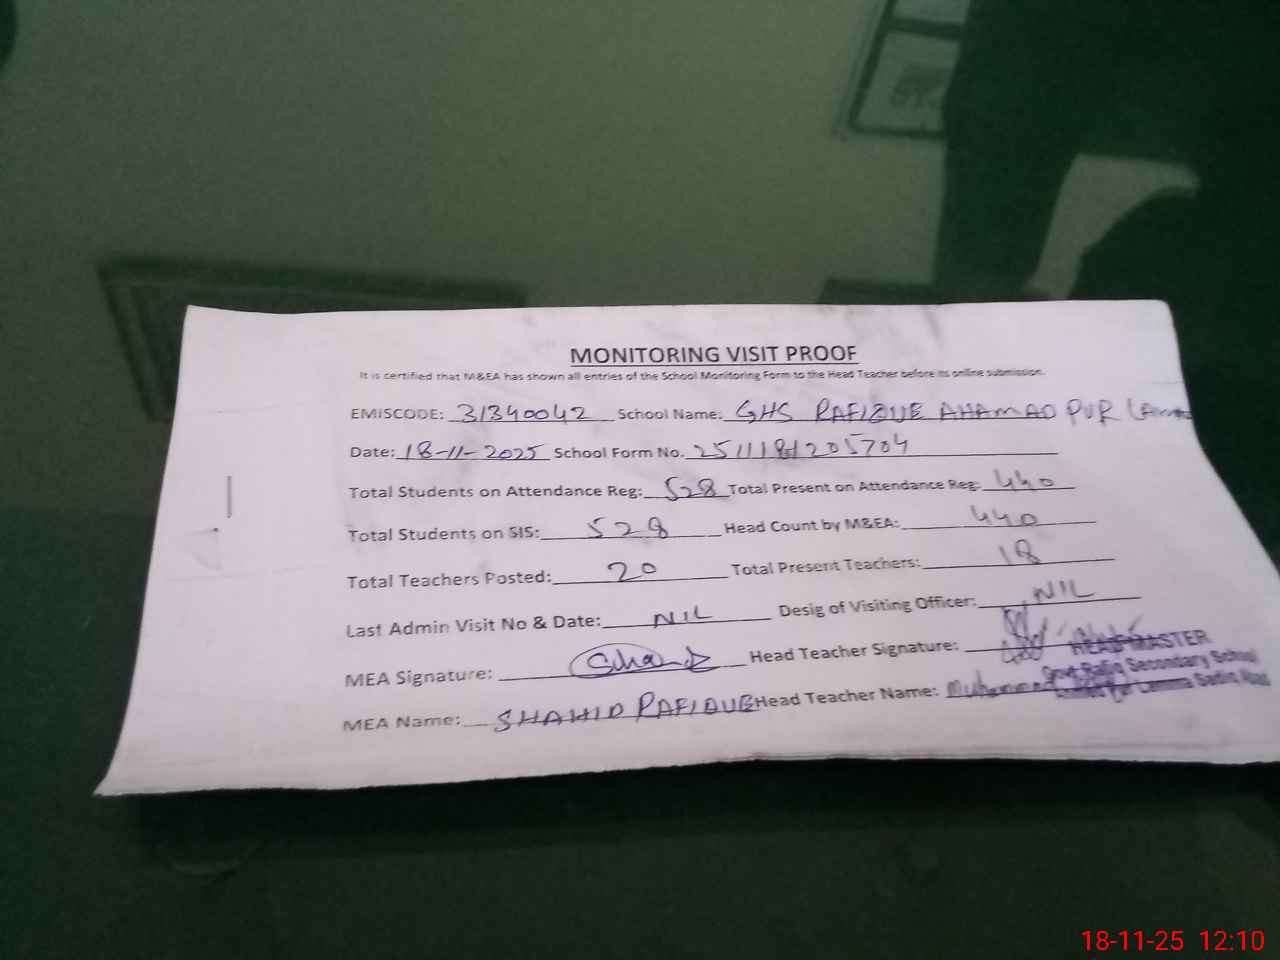 MONITORING VISIT PROOF
It is certified that M&EA has shown all entries of the School Monitoring Form to the Head Teacher before its online submission.
EMISCODE: 31340042 School Name: GHS RAFIQUE AHAMAD PUR
Date: 18-11-2025 School Form No. 2511181205704
Total Students on Attendance Reg: 528 Total Present on Attendance Reg: 440
Total Students on SIS: 528 Head Count by M&EA: 440
Total Teachers Posted: 20 Total Present Teachers: 18
Last Admin Visit No & Date: NIL Desig of Visiting Officer: NIL
MEA Signature: Head Teacher Signature:
HEAD MASTER
Govt. Rafiq Secondary School
MEA Name: SHAHID RAFIQUE Head Teacher Name:
18-11-25 12:10